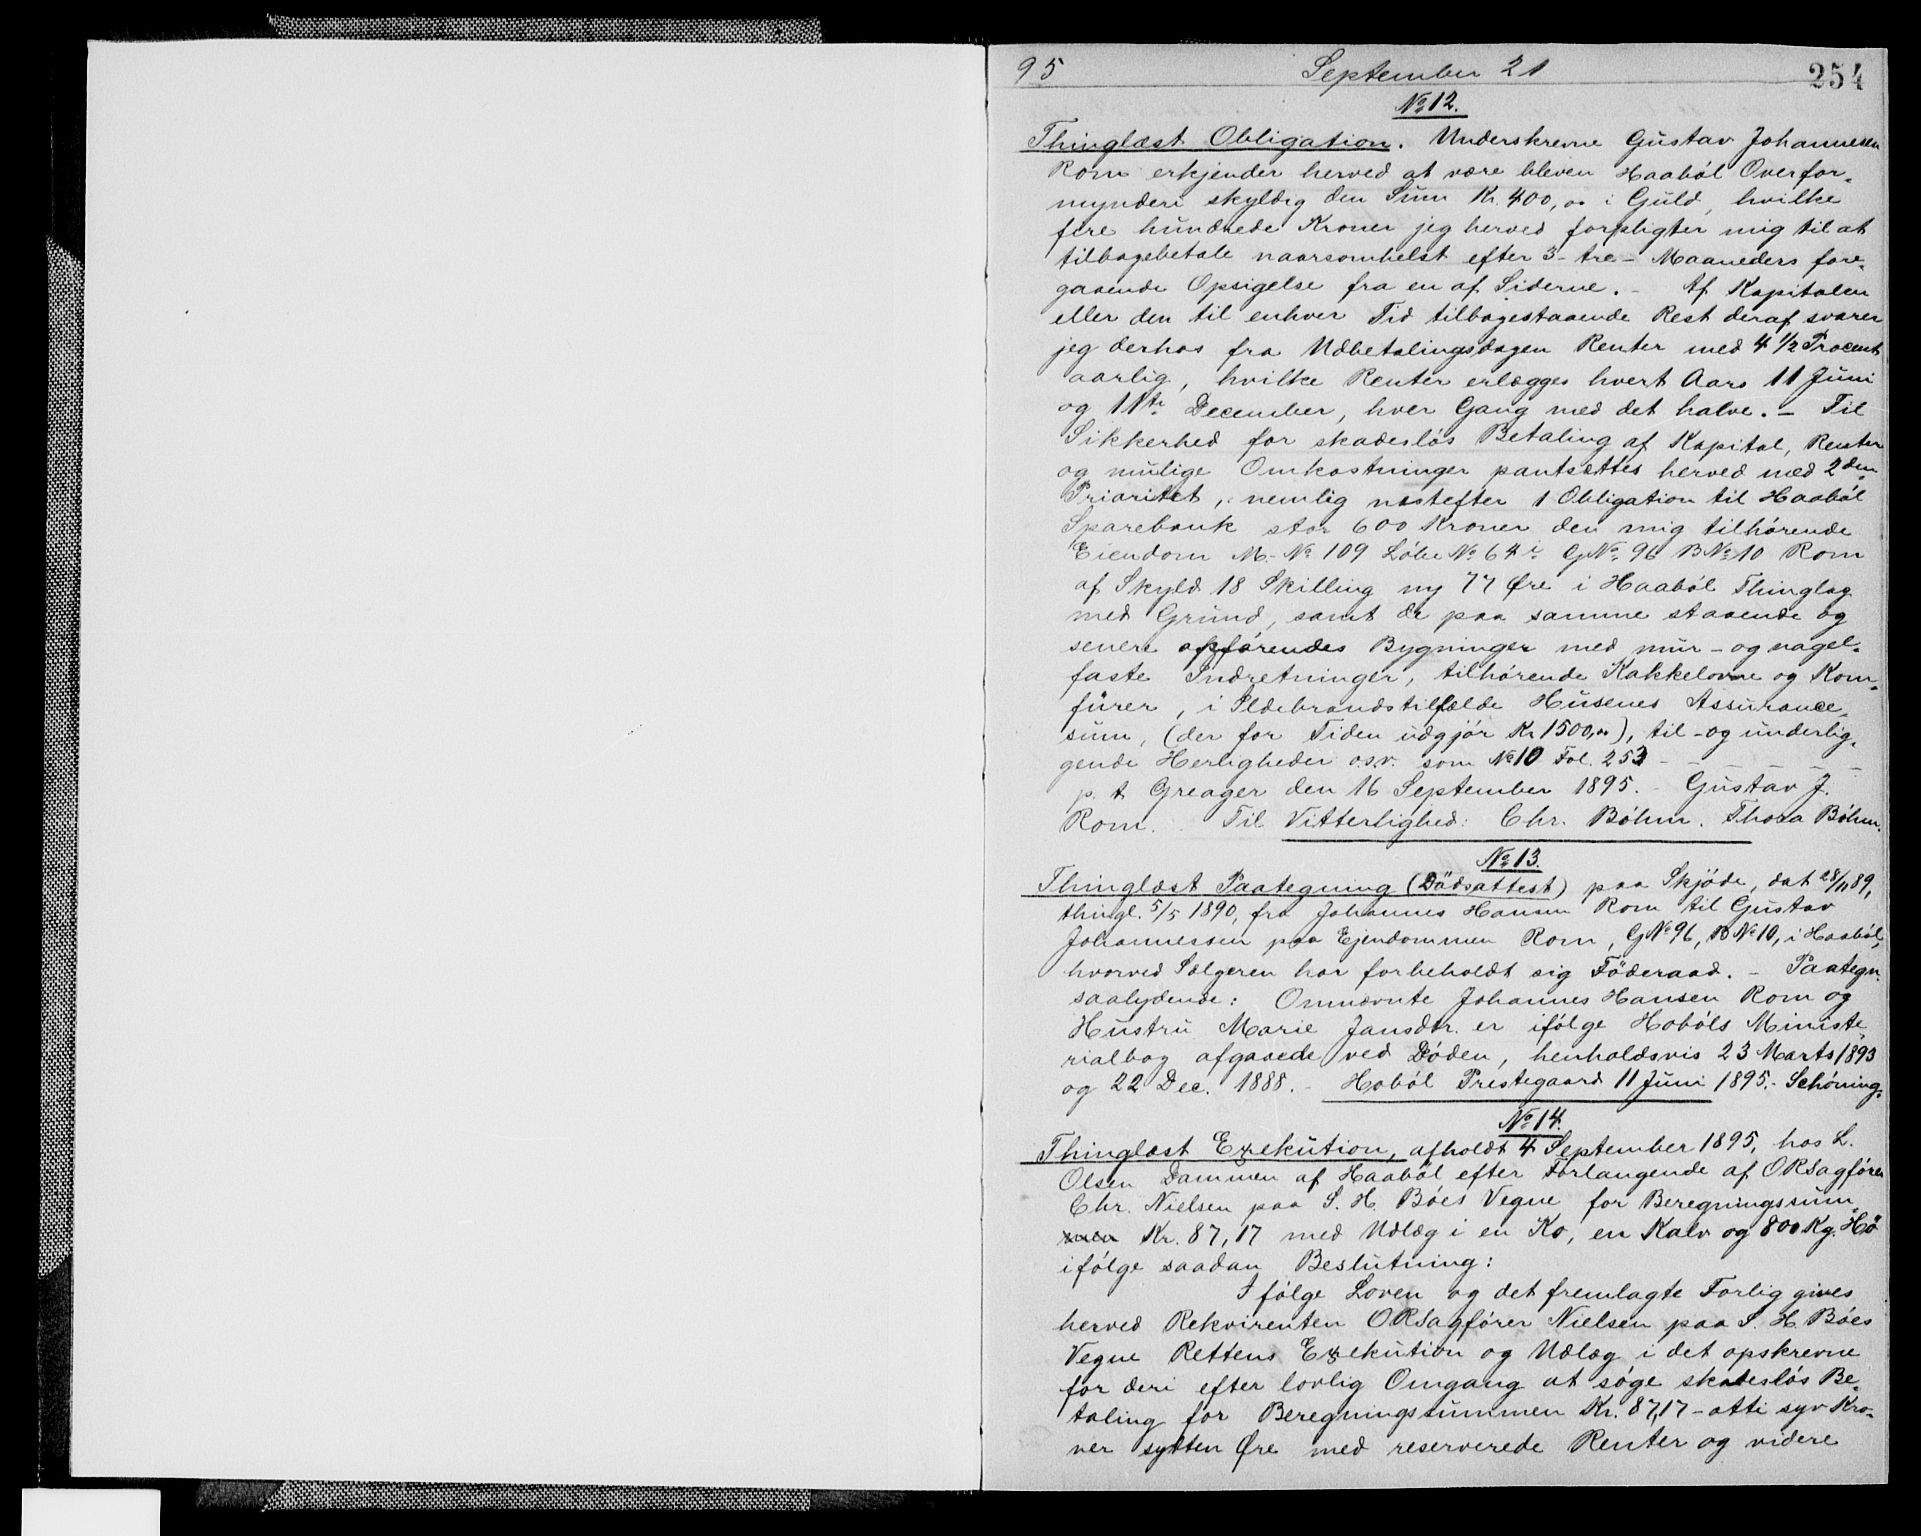 95 September 21 254
No 12.
Thinglæst Obligation. Underskrevne Gustav Johannesen
Rom erkjender herved at være bleven Haabøl Overfor-
mynderi skyldig den Sum Kr. 400,00 i Guld, hvilke
fire hundrede Kroner jeg herved forpligter mig til at
tilbagebetale naarsomhelst efter 3- tre- Maaneders fore-
gaaende Opsigelse fra en af Siderne. - Af Kapitalen
eller den til enhver Tid tilbagestaaende Rest deraf svarer
jeg derhos fra Udbetalingsdagen Renter med 4 1/2 Procent
aarlig, hvilke Renter erlægges hvert Aars 11 Juni
og 11te December, hver Gang med det halve. - Til
Sikkerhed for skadesløs Betaling af Kapital, Renter
og mulige Omkostninger pantsættes herved med 2den
Prioritet, nemlig næstefter 1 Obligation til Haabøl
Sparebank stor 600 Kroner den mig tilhørende
Eiendom M. No 109 Løbe No 64i GNo 96 BNo 10 Rom
af Skyld 18 Skilling ny 77 Øre i Haabøl Thinglag
med Grund, samt de paa samme staaende og
senere opførendes Bygninger med mur- og nagel-
faste Indretninger, tilhørende Kakkelovne og Kom-
fürer, i Ildebrandstilfælde Husenes Assurance-
sum, (der for Tiden udgjør Kr 1500,00), til- og underlig-
gende Herligheder o.s.v. som No 10 Fol. 253 - - - -
p. t. Greager den 16 September 1895. - Gustav J.
Rom. Til Vitterlighed: Chr. Bøhm. Thora Bøhm.
No 13.
Thinglæst Paategning (Dödsattest) paa Skjøde, dat 28/11 89,
thingl. 5/5 1890, fra Johannes Hansen Rom til Gustav
Johannessen paa Ejendommen Rom, GNo 96, BNo 10, i Haabøl,
hvorved Sælgeren har forbeholdt sig Föderaad. - Paategn.
saalydende: Omnævnte Johannes Hansen Rom og
Hustru Marie Jansdtr. er ifølge Hobøls Ministe
rialbog afgaaede ved Døden, henholdsvis 23 Marts 1893
og 22 Dec. 1888. - Hobøl Prestegaard 11 Juni 1895. - Schöning.
No 14.
Thinglæst Exekution, afholdt 4 September 1895, hos L.
Olsen Dammen af Haabøl efter Forlangende af ORSagfører
Chr. Nielsen paa S. H. Bøes Vegne for Beregningssum-
men Kr. 87,17 med Udlæg i en Ko, en Kalv og 800 Kg. Hö
ifølge saadan Beslutning:
Ifølge Loven og det fremlagte Forlig gives
herved Rekvirenten ORSagfører Nielsen paa S. H. Bøes
Vegne Rettens Exekution og Udlæg i det opskrevne
for deri efter lovlig Omgang at søge skadesløs Be-
taling for Beregningssummen Kr. 87,17 - otti syv Kro-
ner sytten Øre med reserverede Renter og videre